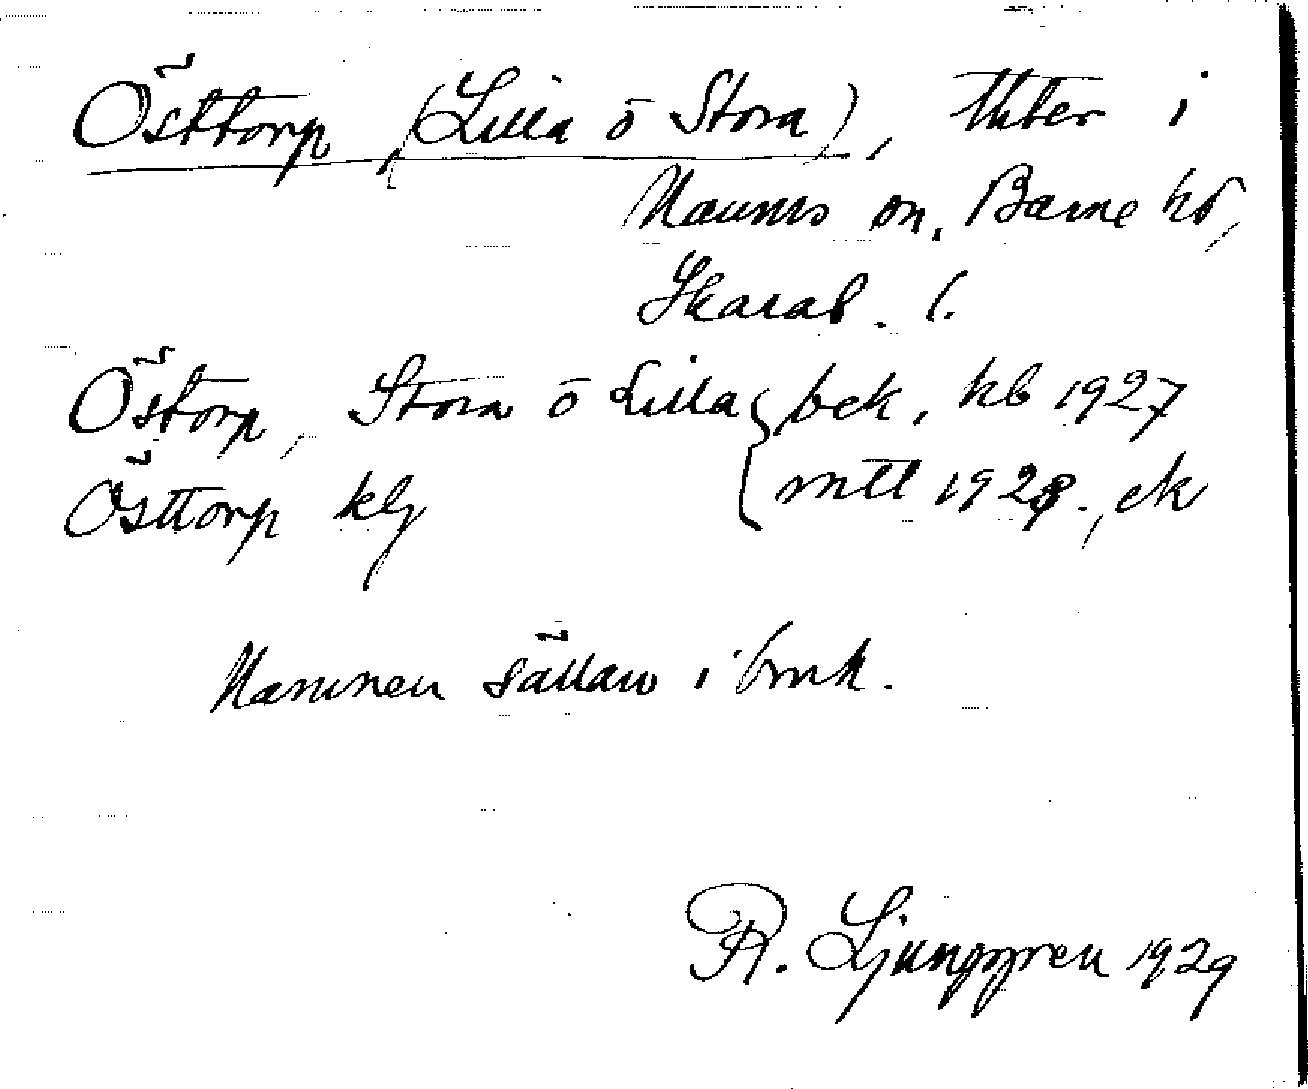 Östtorp, (Lilla o Stora), thter i
Naums sn, Barne hd,
Skarab. l.
Östorp, Stora o Lilla } bek, kb 1927
Östtorp klg { mtl 1928., ek
Namnen sällan i bruk.
R. Ljunggren 1929